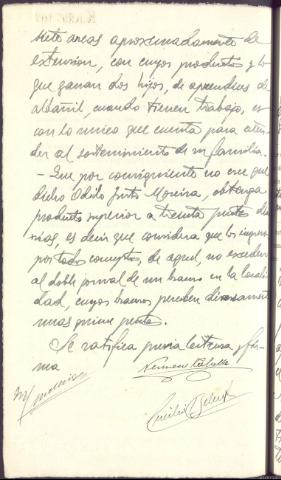 siete areas aproximadamente de
extensión, con cuyos productos y lo
que ganan dos hijos, de aprendices de
albañil, cuando tienen trabajo, es
con lo unico que cuenta para aten-
der al sostenimiento de su familia.
- Que por consiguiente no cree que
dicho Odilo Moreira, obtenga
producto superior a treinta ptas dia-
rias, es decir que considera que los ingresos
por todos conceptos, de aquel, no exceden
al doble jornal de un bracero en la locali-
dad, cuyos braceros perciben
ptas.
Se ratifica previa lectura y fir-
ma